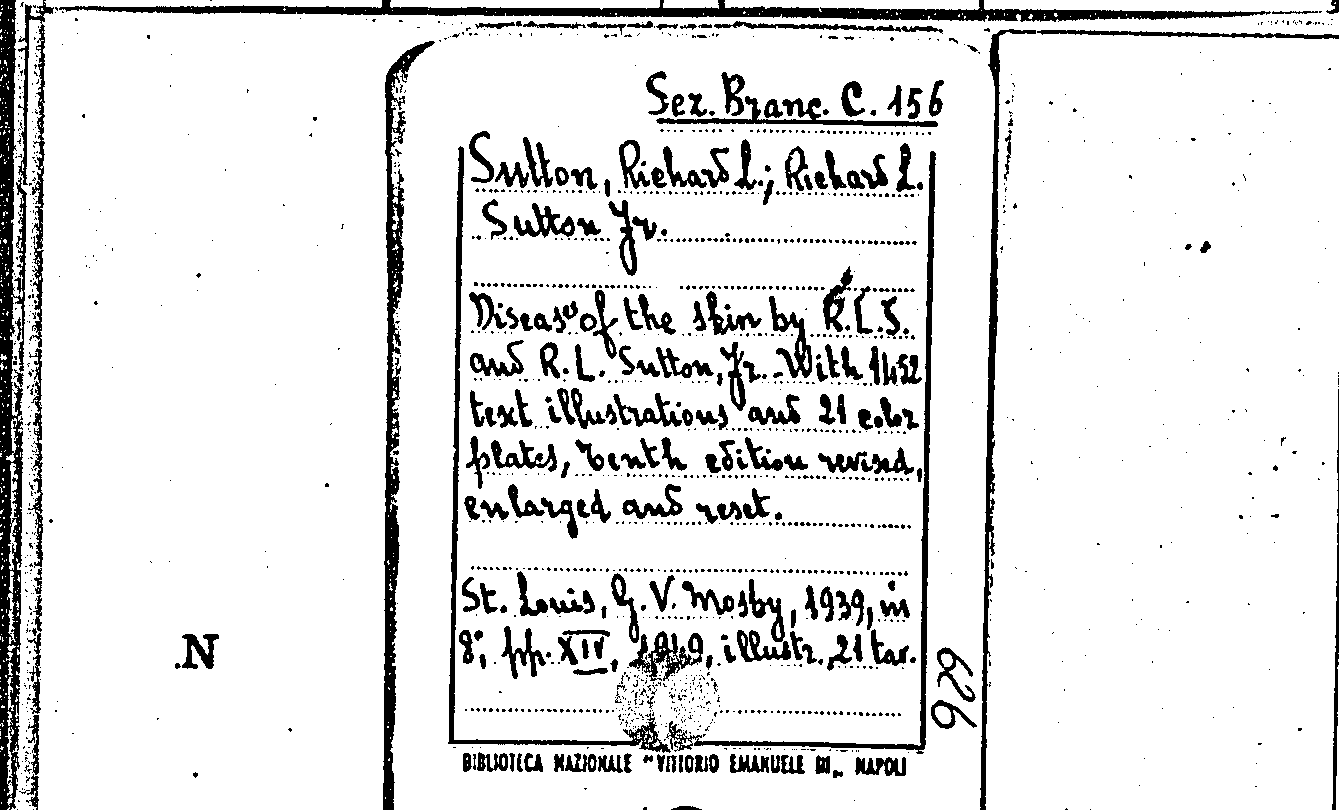 Sez. Branc. C. 156
Sutton, Richard L.; Richard L.
Sutton Jr.
Diseases of the skin by R.L.S.
and R.L. Sutton, Jr. - With 1452
text illustrations and 21 color
plates, tenth edition revised,
enlarged and reset.
St. Louis, G. V. Mosby, 1939, in
8°, pp. XIV, illustr., 21 tav.
626
.N
BIBLIOTECA NAZIONALE "VITTORIO EMANUELE III„ NAPOLI